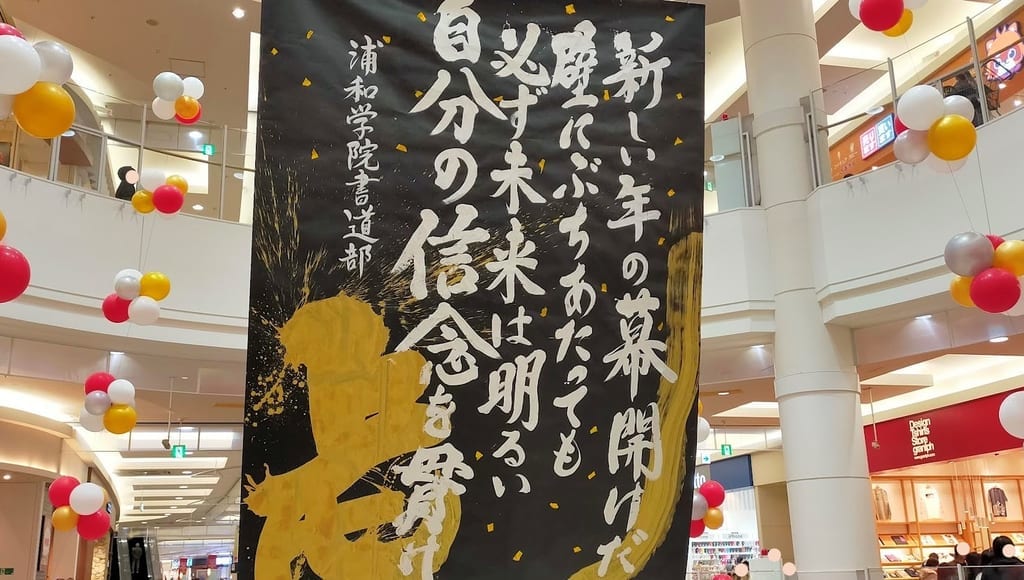 新しい年の幕開けだ
壁にぶちあたっても
必ず未来は明るい
自分の信念を貫け
浦和学院書道部
Design
Tshirts
Store
graniph